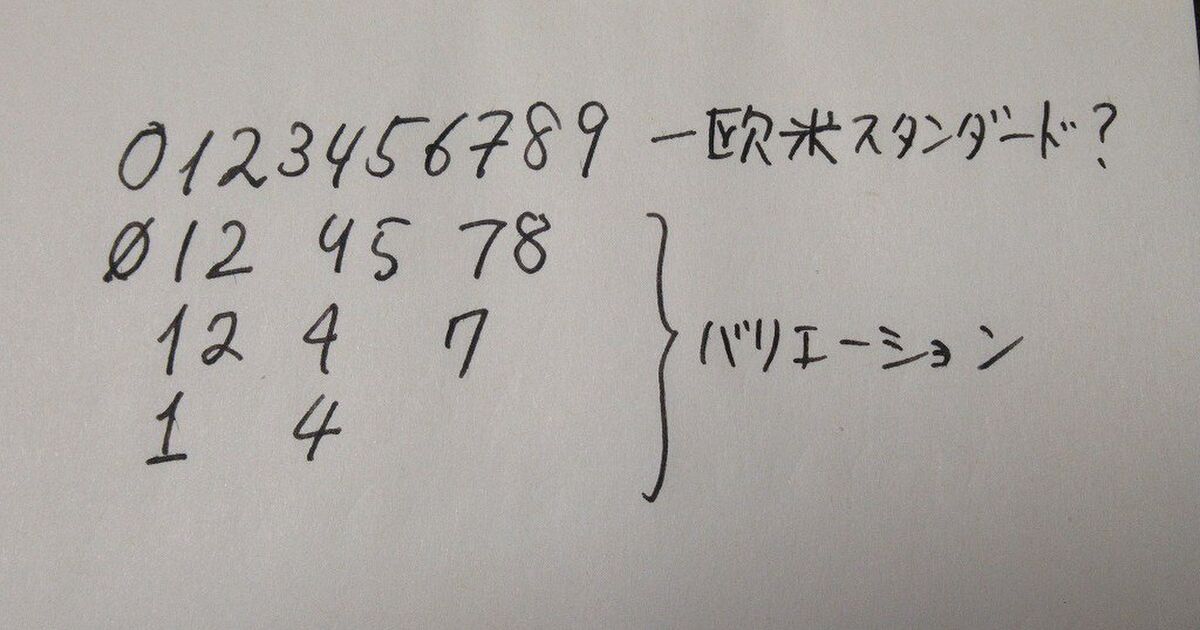 0123456789 ー欧米スタンダード?
012 45 78
12 4 7
バリエーション
1 4